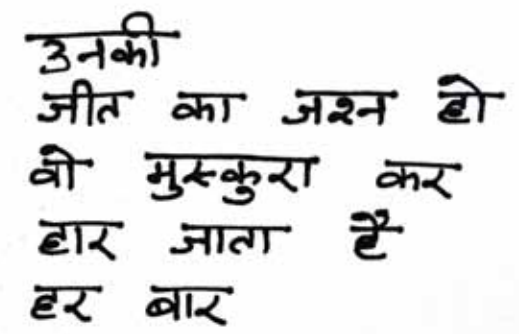 उनकी
जीत का जश्न हो
वो मुस्कुरा कर
हार जाता है
हर बार